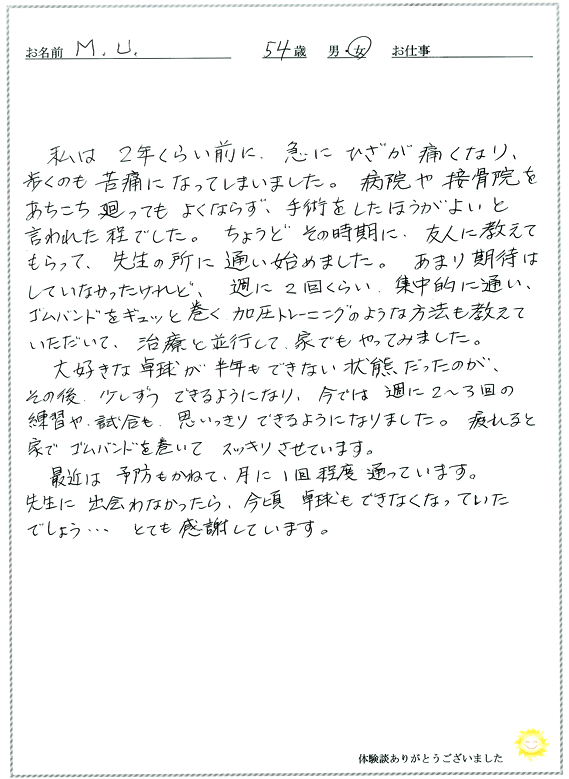 お名前 M.U. 54歳 男・女 お仕事
私は 2年くらい前に、急に ひざが 痛くなり、
歩くのも 苦痛に なってしまいました。 病院や 接骨院を
あちこち 廻っても よくならず、手術を したほうが よい と
言われた 程でした。 ちょうど その時期に、友人に 教えて
もらって、先生の所に 通い始めました。 あまり期待は
していなかったけれど、 週に 2回くらい、集中的に通い、
ゴムバンドをギュッと巻く、加圧トレーニングのような方法も教えて
いただいて、 治療と並行して、家でもやってみました。
大好きな 卓球が 半年も できない 状態だったのが、
その後、少しずつ できるようになり、今では 週に2～3回の
練習や、試合も、思いっきり できるようになりました。 疲れると
家で ゴムバンドを巻いて スッキリ させています。
最近は 予防もかねて、月に1回程度 通っています。
先生に 出会わなかったら、今頃 卓球もできなくなっていた
でしょう… とても感謝しています。
体験談ありがとうございました